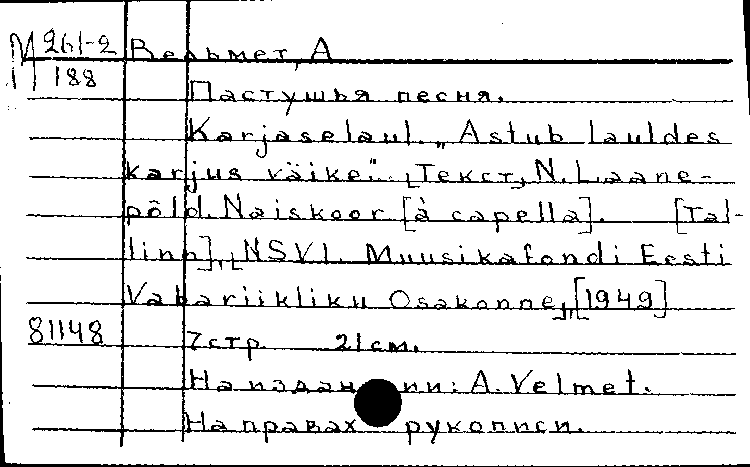 М 261-2 Вельмет, А
188
Пастушья песня.
Karjaselaul. „Astub lauldes
karjus väike". [Текст] N. Laane-
põld. Naiskoor [à capella]. [Tal-
linn], [NSVL Muusikafondi Eesti
Vabariikliku Osakonne], [1949]
81148 7 стр 21 см.
На издании: A. Velmet.
На правах рукописи.